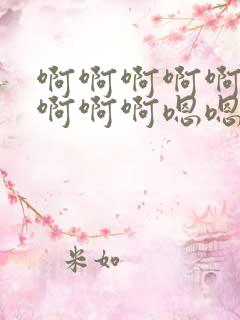 啊啊啊啊啊
啊啊啊嗯嗯
米如